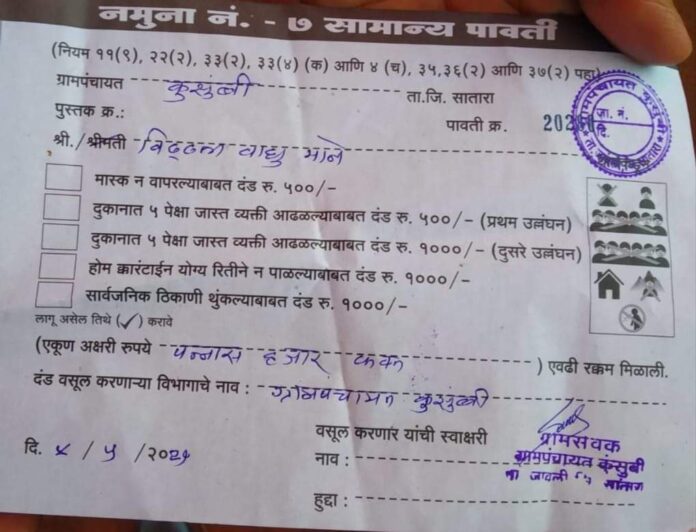 नमुना नं. - ७ सामान्य पावती
(नियम ११(९), २२(२), ३३(२), ३३(४) (क) आणि ४ (च), ३५,३६(२) आणि ३७(२) पहा)
ग्रामपंचायत कुसुंबी ता.जि. सातारा
पुस्तक क्र.: पावती क्र.
श्री./श्रीमती विठ्ठल माने
मास्क न वापरल्याबाबत दंड रु. ५००/-
दुकानात ५ पेक्षा जास्त व्यक्ती आढळल्याबाबत दंड रु. ५००/- (प्रथम उल्लंघन)
दुकानात ५ पेक्षा जास्त व्यक्ती आढळल्याबाबत दंड रु. १०००/- (दुसरे उल्लंघन)
होम क्वारंटाईन योग्य रितीने न पाळल्याबाबत दंड रु. १०००/-
सार्वजनिक ठिकाणी थुंकल्याबाबत दंड रु. १०००/-
लागू असेल तिथे (✓) करावे
(एकूण अक्षरी रुपये पन्नास हजार फक्त ) एवढी रक्कम मिळाली.
दंड वसूल करणाऱ्या विभागाचे नाव : ग्रामपंचायत कुसुंबी
वसूल करणार यांची स्वाक्षरी
ग्रामसेवक
दि. ४ / ५ /२०२१
नाव : ग्रामपंचायत कुसुंबी
ता जावली जि सातारा
हुद्दा :